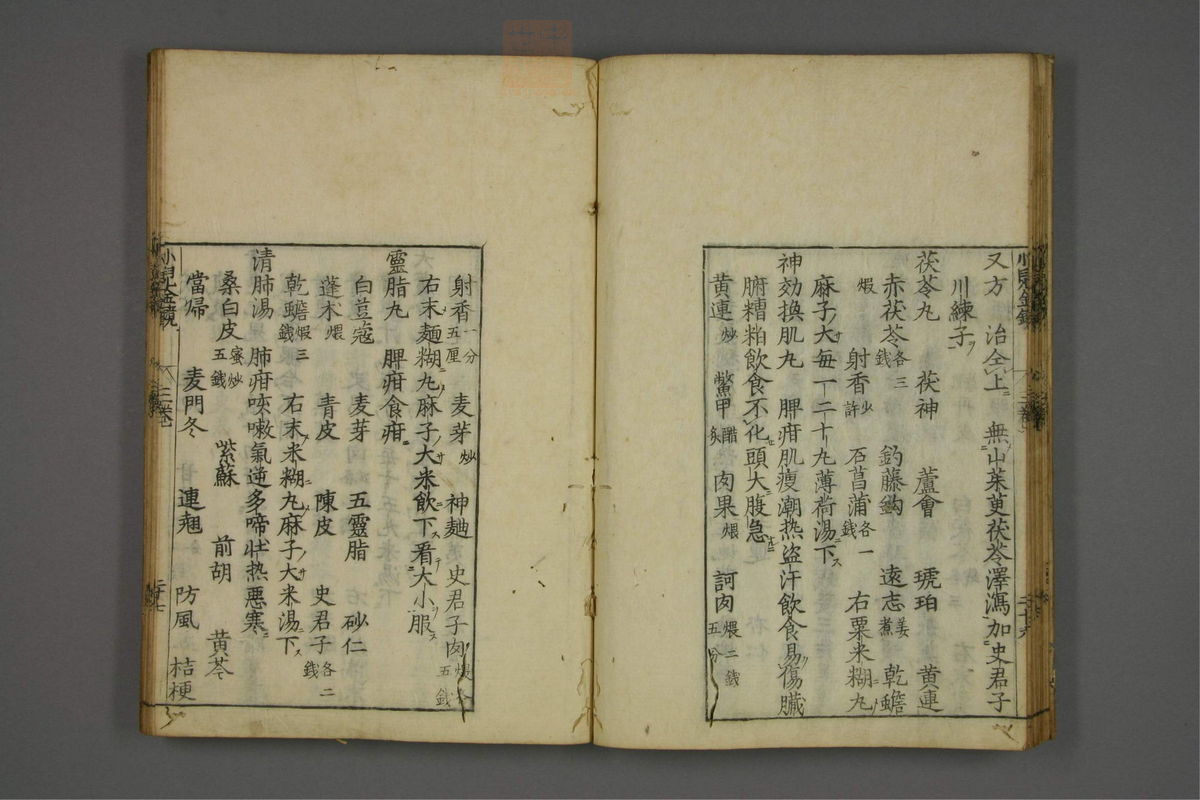 又方 治仝上 無山茱萸茯苓澤瀉加史君子
川練子
茯苓丸 茯神 蘆會 琥珀 黄連
赤茯苓各三錢 釣藤鈎 遠志姜煮 乾蟾
煅 射香少許 石菖蒲各一錢 右粟米糊丸
麻子大每一二十丸薄荷湯下
神効換肌丸 脾疳肌瘦潮热盜汗飲食易傷臓
腑糟粕飲食不化頭大腹急
黄連炒 鱉甲醋炙 肉果煨 訶肉煨二錢五分
射香一分五厘 麦芽炒 神麯 史君子肉煨各五錢
右末麺糊丸麻子大米飲下看大小服
靈脂丸 脾疳食疳
白荳蔻 麦芽 五靈脂 砂仁
蓬朮煨 青皮 陳皮 史君子各二錢
乾蟾煅三錢 右末米糊丸麻子大米湯下
清肺湯 肺疳咳嗽氣逆多啼壮热悪寒
桑白皮蜜炒五錢 紫蘇 前胡 黄芩
當帰 麦門冬 連翹 防風 桔梗